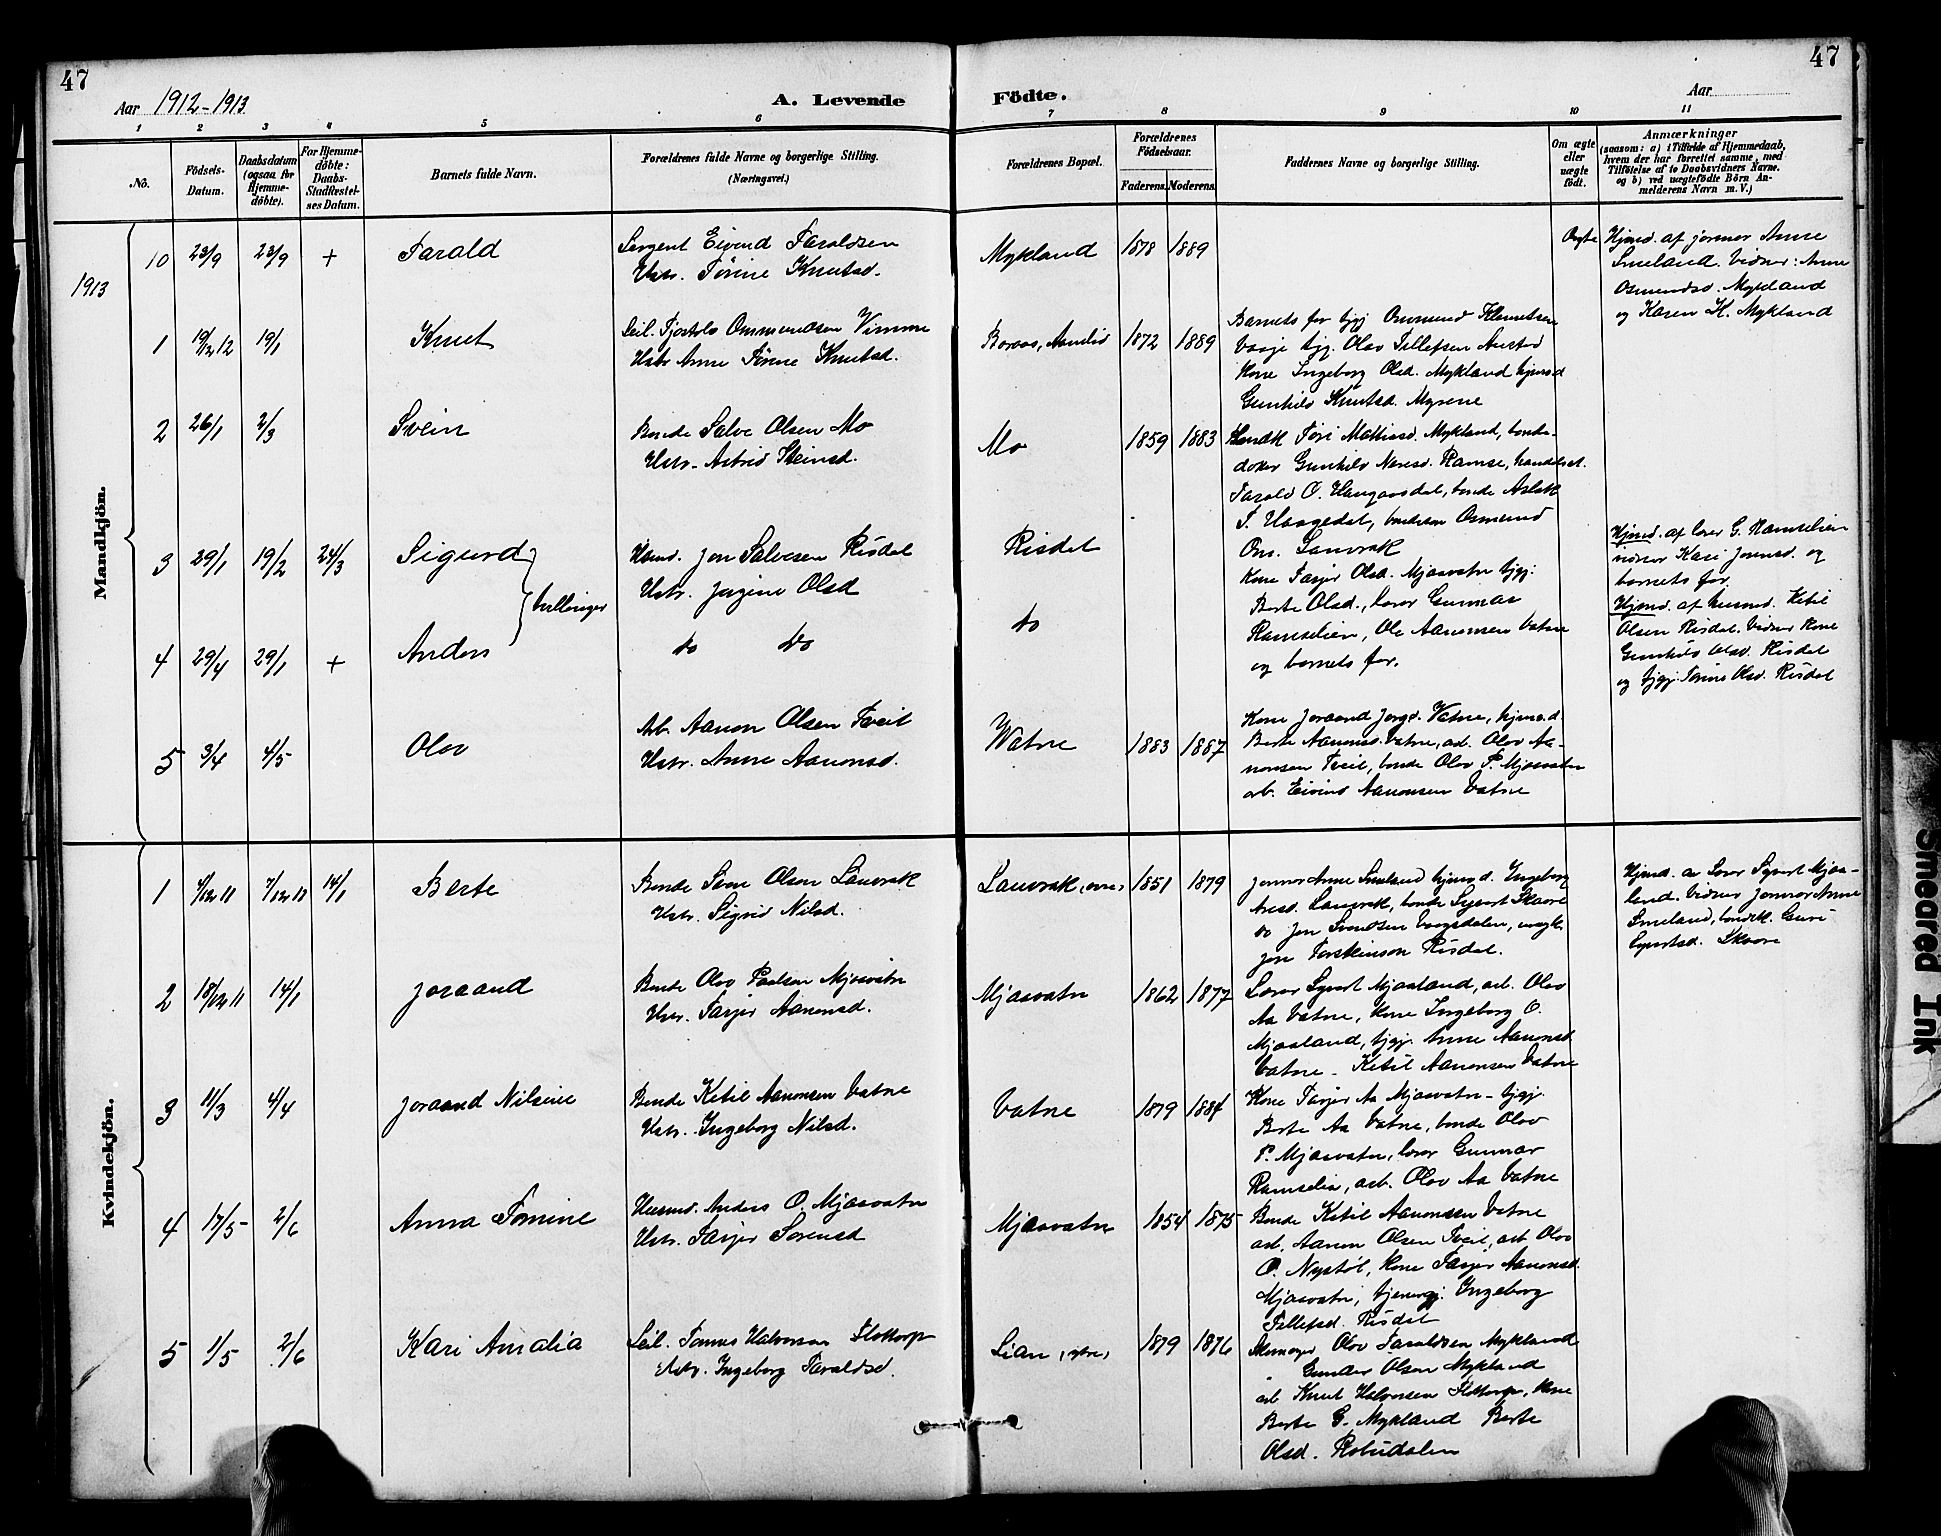 47
47
Aar 1912-1913
A. Levende
Födte.
Aar
1 2 3 4 5 6 7 8 9 10 11
No.
Födsels-
Datum.
Daabsdatum
(ogsaa for
Hjemme-
döbte).
For Hjemme-
döbte:
Daabs-
Stadfæstel-
ses Datum.
Barnets fulde Navn.
Forældrenes fulde Navne og borgerlige Stilling.
(Næringsvei.)
Forældrenes Bopæl.
Forældrenes
Födselsaar.
Faderens. Moderens.
Faddernes Navne og borgerlige Stilling.
Om ægte
eller
uægte
født.
Anmærkninger
(saasom: a) i Tilfælde af Hjemmedaab,
hvem der har forrettet samme, med
Tilföielse af to Daabsvidners Navne.
og b) ved uægtefödte Börn An-
melderens Navn m. V.)
Mandkjön.
10 23/9 23/9 + Tarald
Sergent Eivind Taraldsen
Hstr. Tórine Knutsd.
Mykland 1878 1889
Ægte
Hjmd. af jormor Anne
Smeland. Vidner: Anne
Osmundsd. Mykland
og Karen K. Mykland
1913
1 19/12 12 19/1 Knut
Seil. Tjostolv Ommundsen Vimme
Hstr Anne Tónne Knutsd.
Boraas, Aamlid 1872 1889
Barnets far tjgj Ommund Klemetsen
Vaaje tjg. Olov Tellefsen Austad
Kone Ingeborg Olsd. Mykland hjmd
Gunhild Knutsd. Myrene
2 26/1 2/3 Svein
Bonde Salve Olsen Mo
Hstr. Astrid Steinsd.
Mo 1859 1883
Tóri Mathisd. Mykland, bonde-
doter Gunhild Neresd. Ramse, handelsst.
Tarald O. Haugaasdal, bonde Aslak
T. Haagedal, bondeson Osmund
Om. Lauvrak
3 29/1 19/2 24/3 Sigurd
Husmd. Jon Salvesen Risdal
Hstr. Jorgine Olsd
Risdal
Kone Tarjer Olsd. Mjaavatn tjgj.
Berte Olsd., lærer Gunnar
Ramselien, Ole Aanonsen Vatne
og barnets far.
Hjmd. af lærer G. Ramselien
vidner Kari Jonsd. og
barnets far.
tvillinger
4 29/4 29/1 + Anders
do do
do
Hjmd. af husmd. Ketil
Olsen Risdal. Vidner Kone
Gunhild Olsd. Risdal
og tjgj. Torine Olsd. Risdal
5 3/4 4/5 Olov
Arb. Aanon Olsen Tveit
Hstr. Anne Aanonsd.
Watne 1883 1887
Kone Joraand Jorgd. Vatne, hjmd.
Berte Aanonsd. Vatne, arb. Olov Aa-
nonsen Tveit, bonde Olov P. Mjaavatn
arb. Eivind Aanonsen Vatne
Kvindekjön.
1 4/12 11 7/12 12 14/1 Berte
Bonde Sven Olsen Lauvrak
Hstr. Sigrid Nilsd.
Lauvrak, øvre, 1851 1879
Jormor Anne Smeland hjms d. Ingeborg
Aresd. Lauvrak, bonde Syvert Skaare
do Jon Svendsen Vaagsdalen, ungk.
Jon Torsteinson Risdal.
Hjmd. av Lærer Syvert Mjaa-
land. Vidner Jormor Anne
Smeland, bondek. Guri
Syvertsd. Skaare
2 18/12 11 14/1 Joraand
Bonde Olov Paalsen Mjaavatn
Hstr. Tarjer Aanonsd.
Mjaavatn 1862 1877
Lærer Syvert Mjaaland, arb. Olov
Aa Vatne, Kone Ingeborg O.
Mjaaland, tjgj. Anne Aanonsd.
Vatne - Ketil Aanonsen Vatne
3 11/3 4/4 Joraand Nilsine
Bonde Ketil Aanonsen Vatne
Hstr. Ingeborg Nilsd.
Vatne 1879 1884
Kone Tarjer Aa Mjaavatn - tjgj.
Berte Aa Vatne, bonde Olov
P. Mjaavatn, lærer Gunnar
Ramselia, arb. Olov Aa Vatne
4 17/5 2/6 Anna Tomine
Husmd. Anders O. Mjaavatn
Hstr. Tarjer Sorensd
Mjaavatn 1854 1875
Bonde Ketil Aanonsen Vatne
arb. Aanon Olsen Tveit, arb Olov
O. Nystøl, Kone Tarjer Aanonsd.
Mjaavatn, tjenergj. Ingeborg
Tellefsd. Risdal
5 1/5 2/6 Kari Amalia
Seil. Tomas Halvorsen Flottorp
Hstr. Ingeborg Taraldsd.
Lian, ytre, 1879 1876
Olov Taraldsen Mykland
" Gunder Olsen Mykland
arb Knut Halvorsen Flottorp, Kone
Berte G. Mykland Berte
Olsd. Robudalen
Smeared Ink